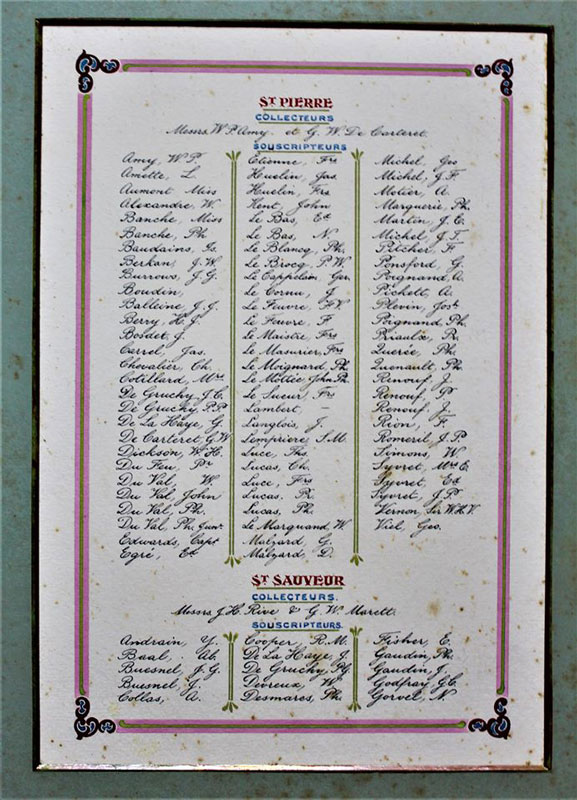 ST PIERRE
COLLECTEURS
Messrs W. P. Amy et G. W. De Carteret.
SOUSCRIPTEURS
Amy, W. P.
Amette, L.
Aumont Miss
Alexandre, W.
Banche, Miss
Banche, Ph.
Baudains, Gs.
Berkan, J. W.
Burrows, J. G.
Boudin,
Balleine, J. J.
Berry, H. J.
Bosdet, J.
Carrel, Jas.
Chevalier, Ch.
Cotillard, Mrs.
De Gruchy, J. C.
De Gruchy, P. P.
De La Haye, G.
De Carteret, G. W
Dickson, W. H.
Du Feu, Pr
Du Val, W.
Du Val, John
Du Val, Ph.
Du Val, Ph. Junr.
Edwards, Capt
Egré, Ed
Etienne, Frs
Huelin, Jas.
Huelin, Frs.
Kent, John
Le Bas, Ed
Le Bas, N.
Le Blancq, Ph.
Le Brocq, P. W.
Le Cappelain, Geo.
Le Cornu, J.
Le Feuvre, F. V.
Le Feuvre, F.
Le Maistre, Frs
Le Masurier, Frs
Le Moignard, Ph.
Le Mottée, John Ph.
Le Sueur, Frs
Lambert, –
Langlois, J.
Lempriere, S. M.
Luce, Ths.
Lucas, Ch.
Luce, Frs
Lucas, R.
Lucas, Ph.
Le Marquand, W.
Malzard, G.
Malzard, D.
Michel, Geo
Michel, J. F.
Motier, A.
Marguerie, Ph.
Martin, J. E.
Michel, J. T.
Pitcher, F.
Ponsford, G.
Poignand, A.
Pichett, A.
Plevin, Josh.
Poignand, Ph.
Piraulx, R.
Querée, Ph.
Quenault, Ph.
Renouf, J.
Renouf, P.
Renouf, J.
Rion, F.
Romeril, J. P.
Simons, W.
Syvret, Mrs E.
Syvret, Ed
Syvret, J. P.
Vernon, Sir W. H. V.
Viel, Geo.
ST SAUVEUR
COLLECTEURS.
Messrs J. H. Rive & G. W. Marett.
SOUSCRIPTEURS.
Andrain, Y.
Baal, Ab.
Buesnel, J. G.
Buesnel, J.
Collas, A.
Cooper, R. M.
De La Haye, J.
De Gruchy, Ph.
Devreux, W.
Desmares, Ph.
Fisher, E.
Gaudin, Ph.
Gaudin, J.
Godfray, G. C.
Gorvel, N.